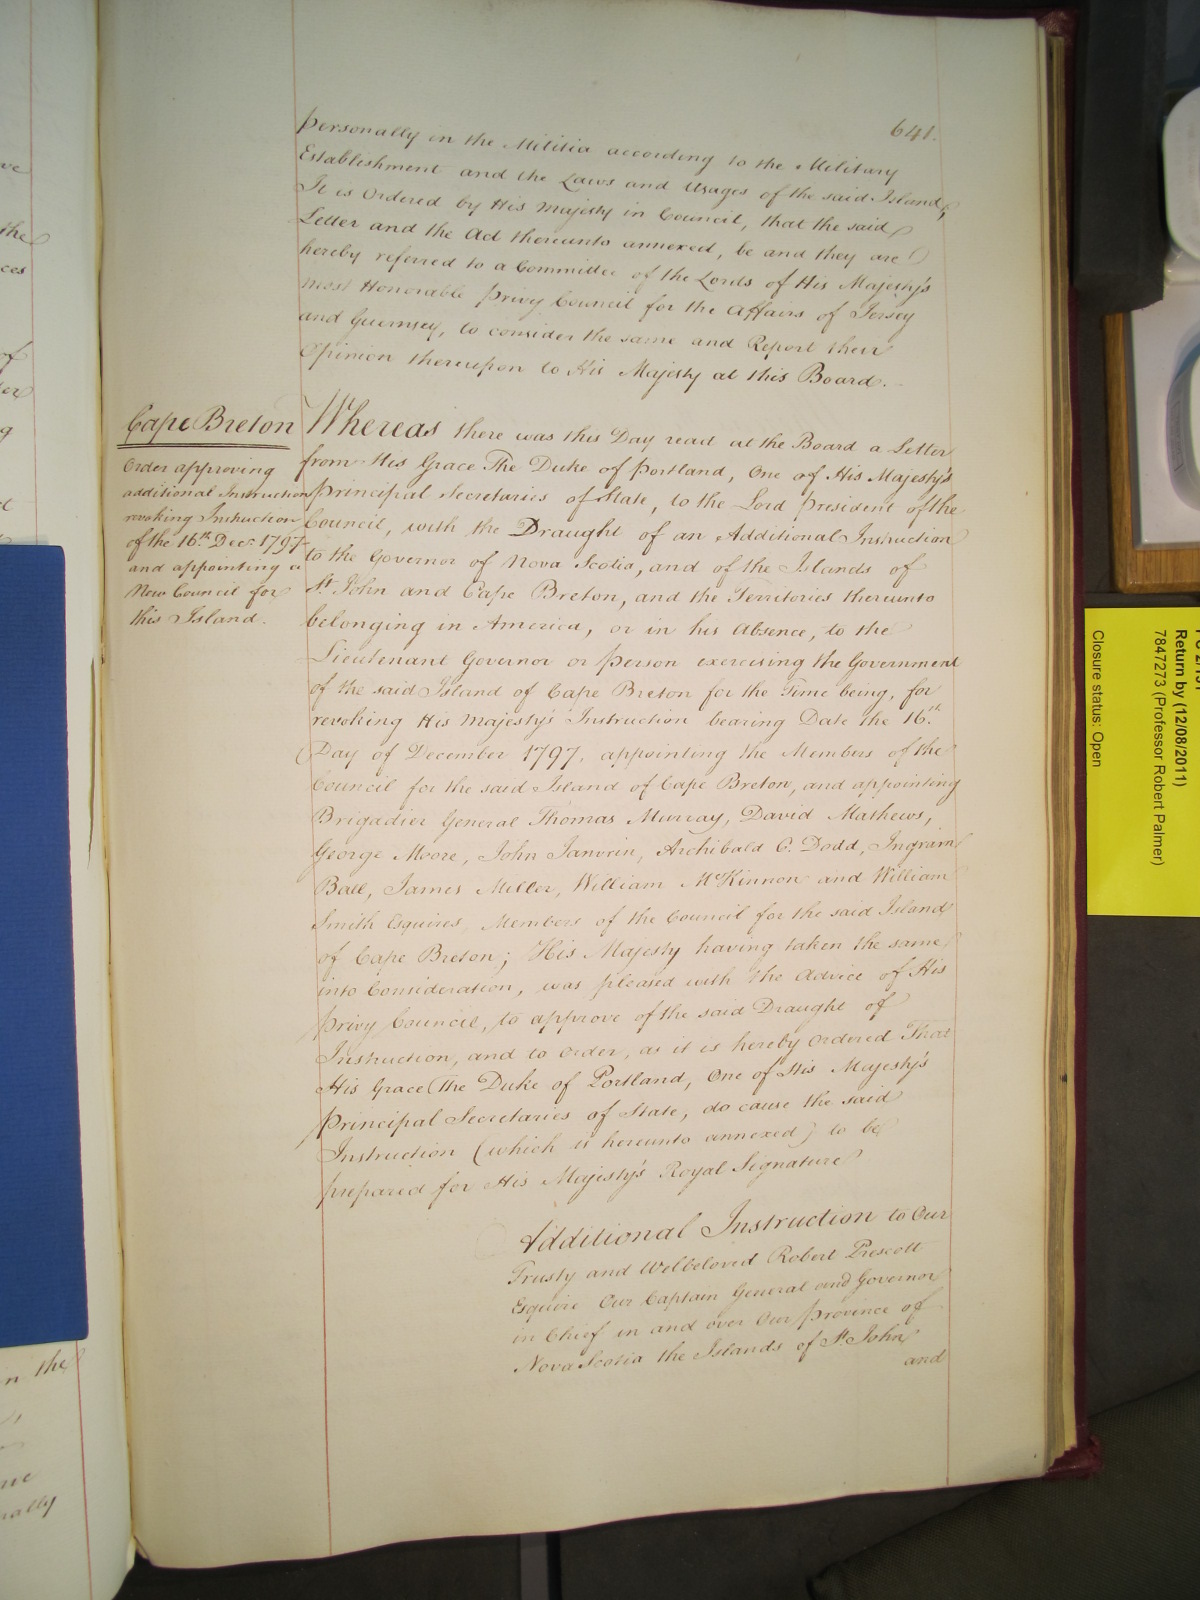 641.
personally in the Militia according to the Military
Establishment and the Laws and Usages of the said Island;
It is Ordered by His Majesty in Council, that the said
Letter and the Act thereunto annexed, be and they are
hereby referred to a Committee of the Lords of His Majesty's
most Honorable Privy Council for the Affairs of Jersey
and Guernsey, to consider the same and Report their
Opinion thereupon to His Majesty at this Board.
Cape Breton
Order approving
additional Instruction
revoking Instruction
of the 16th Decr. 1797
and appointing a
New Council for
this Island.
Whereas there was this Day read at the Board a Letter
from His Grace The Duke of Portland, One of His Majesty's
Principal Secretaries of State, to the Lord President of the
Council, with the Draught of an Additional Instruction
to the Governor of Nova Scotia, and of the Islands of
St. John and Cape Breton, and the Territories thereunto
belonging in America, or in his Absence, to the
Lieutenant Governor or Person exercising the Government
of the said Island of Cape Breton for the Time being, for
revoking His Majesty's Instruction bearing Date the 16th
Day of December 1797, appointing the Members of the
Council for the said Island of Cape Breton, and appointing
Brigadier General Thomas Murray, David Mathews,
George Moore, John Janvrin, Archibald C. Dodd, Ingram
Ball, James Miller, William McKinnon and William
Smith Esquires, Members of the Council for the said Island
of Cape Breton; His Majesty having taken the same
into Consideration, was pleased with the Advice of His
Privy Council, to approve of the said Draught of
Instruction, and to Order, as it is hereby Ordered That
His Grace the Duke of Portland, One of His Majesty's
Principal Secretaries of State, do cause the said
Instruction (which is hereunto annexed) to be
prepared for His Majesty's Royal Signature
Additional Instruction to Our
Trusty and Welbeloved Robert Prescott
Esquire Our Captain General and Governor
in Chief in and over Our Province of
Nova Scotia the Islands of St. John
and
Return by (12/08/2011)
7847273 (Professor Robert Palmer)
Closure status: Open